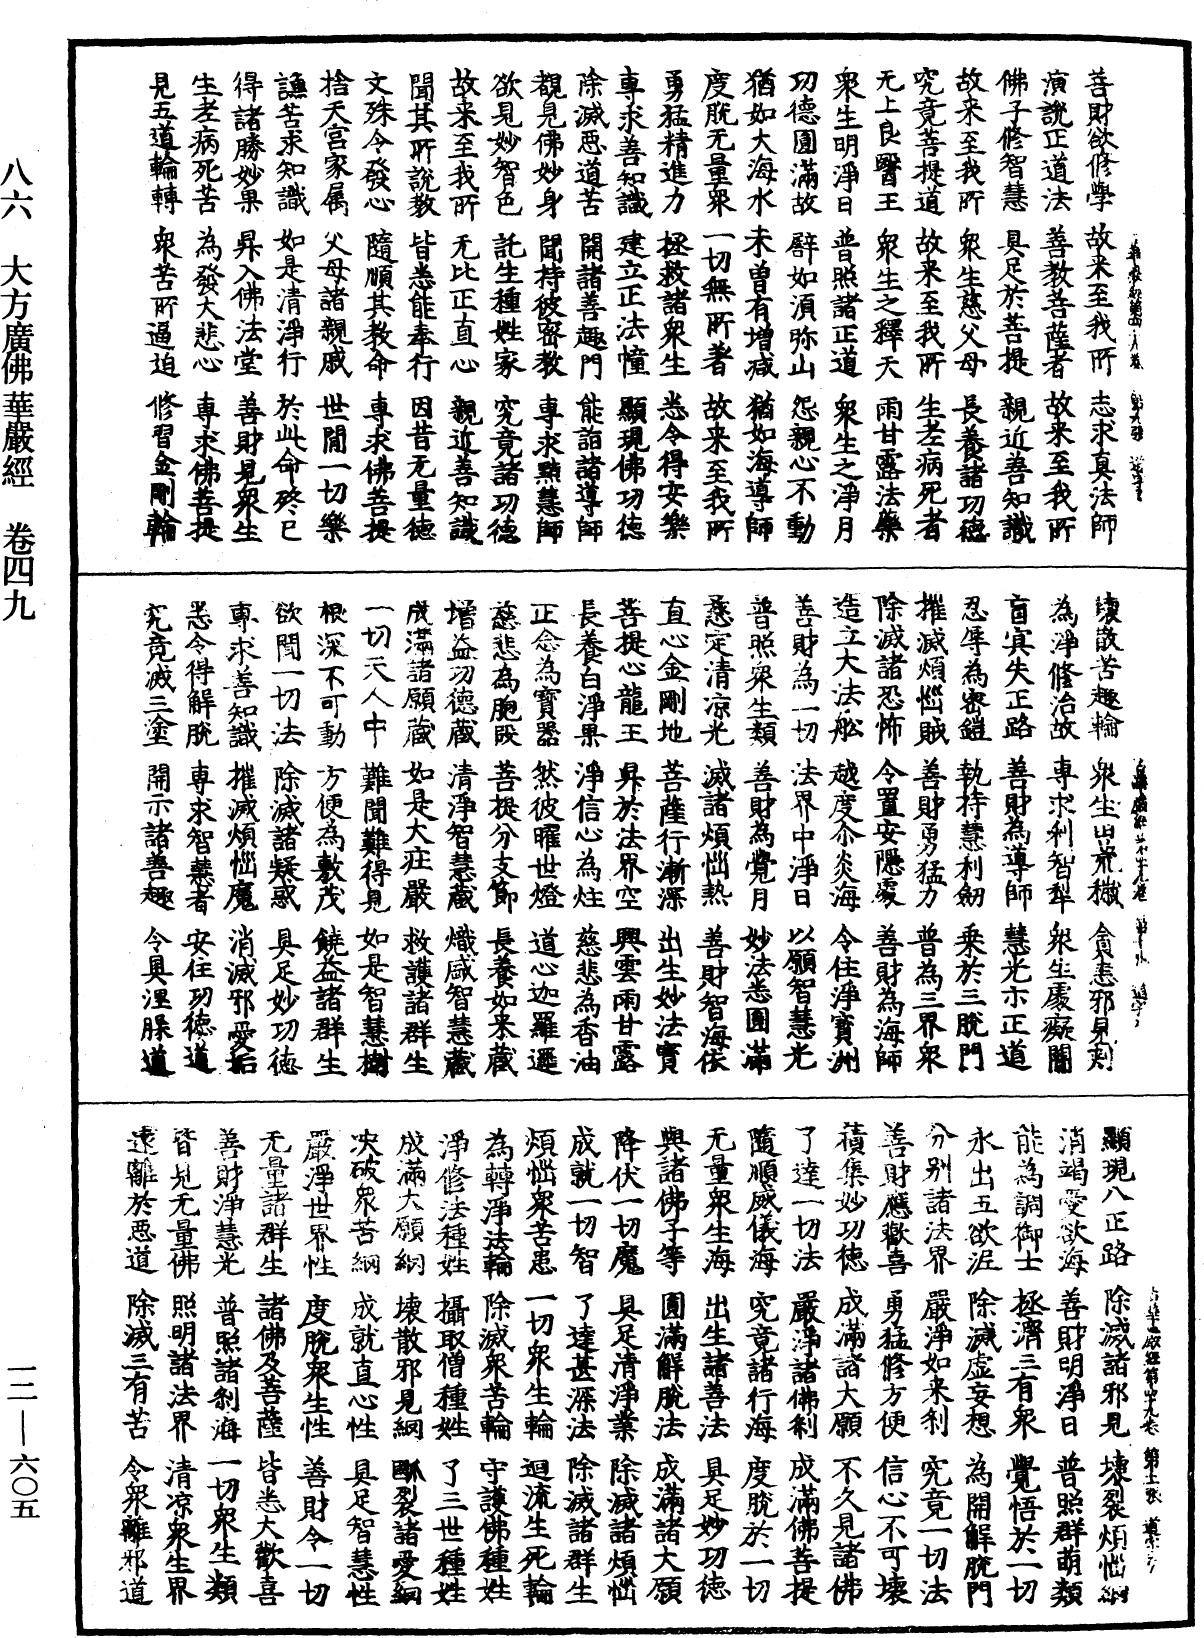 善財欲修學 故来至我所 志求真法師
演說正道法 善教菩薩者 故来至我所
佛子修智慧 具足於菩提 親近善知識
故来至我所 衆生慈父母 長養諸功德
究竟菩提道 故来至我所 生老病死者
无上良醫王 衆生之釋天 雨甘露法藥
衆生明淨日 普照諸正道 衆生之淨月
功德圓滿故 譬如湏弥山 怨親心不動
猶如大海水 未曾有增减 猶如海導師
度脫无量衆 一切無所著 故来至我所
勇猛精進力 拯救諸衆生 悉令得安樂
專求善知識 建立正法幢 顯現佛功德
除滅惡道苦 開諸善趣門 能詣諸導師
覩見佛妙身 聞持彼密教 專求黠慧師
欲見妙智色 託生種姓家 究竟諸功德
故来至我所 无比正直心 親近善知識
聞其所說教 皆悉能奉行 因昔无量德
文殊令發心 隨順其教命 專求佛菩提
捨天宮家属 父母諸親戚 世間一切樂
謙苦求知識 如是清淨行 於此命終已
得諸勝妙果 昇入佛法堂 善財見衆生
生老病死苦 為發大悲心 專求佛菩提
見五道輪轉 衆苦所逼迫 修習金剛輪
壞散苦趣輪 衆生 荒 貪恚邪見刻
為淨修治故 專求利智犁 衆生處癡闇
盲冥失正路 善財為導師 慧光示正道
忍辱為密鎧 執持慧利劒 乘於三脫門
摧滅煩惱賊 善財勇猛力 普為三界衆
除滅諸恐怖 令置安隱處 善財為海師
造立大法舩 越度尒炎海 令住淨寶洲
善財為一切 法界中淨日 以願智慧光
普照衆生類 善財為覺月 妙法悉圓滿
慈定清凉光 滅諸煩惱熱 善財智海依
直心金剛地 菩薩行漸深 出生妙法寶
菩提心龍王 昇於法界空 興雲雨甘露
長養白淨果 淨信心為炷 慈悲為香油
正念為寶器 然彼曜世燈 道心迦羅邏
慈悲為胞段 菩提分支節 長養如来藏
增益功德藏 清淨智慧藏 熾盛智慧藏
成滿諸願藏 如是大庄嚴 救護諸群生
一切天人中 難聞難得見 如是智慧樹
根深不可動 方便為敷茂 饒益諸群生
欲聞一切法 除滅諸疑惑 具足妙功德
專求善知識 摧滅煩惱魔 消滅邪愛垢
悉令得解脫 專求智慧者 安住功德道
究竟滅三塗 開示諸善趣 令具涅槃道
顯現八正路 除滅諸邪見 壞裂煩惱網
消竭愛欲海 善財明淨日 普照群萌類
能為調御士 拯濟三有衆 覺悟於一切
永出五欲泥 除滅虛妄想 為開解脫門
分別諸法界 嚴淨如来刹 究竟一切法
善財應歡喜 勇猛修方便 信心不可壞
積集妙功德 成滿諸大願 不久見諸佛
了達一切法 嚴淨諸佛刹 成滿佛菩提
隨順威儀海 究竟諸行海 度脫於一切
无量衆生海 出生諸善法 具足妙功德
與諸佛子等 圓滿解脫法 成滿諸大願
降伏一切魔 具足清淨業 除滅諸煩惱
成就一切智 了達甚深法 除滅諸群生
煩惱衆苦患 一切衆生輪 迴流生死輪
為轉淨法輪 除滅衆苦輪 守護佛種姓
淨修法種姓 攝取僧種姓 了三世種姓
成滿大願網 壞散邪見網 斷裂諸愛網
决破衆苦網 成就直心性 具足智慧性
嚴淨世界性 度脫衆生性 善財令一切
无量諸群生 諸佛及菩薩 皆悉大歡喜
善財淨慧光 普照諸刹海 一切衆生類
皆見无量佛 照明諸法界 清凉衆生界
遠離於惡道 除滅三有苦 令衆離邪道
八六 大方廣佛華嚴經 卷四九
一二—六〇五